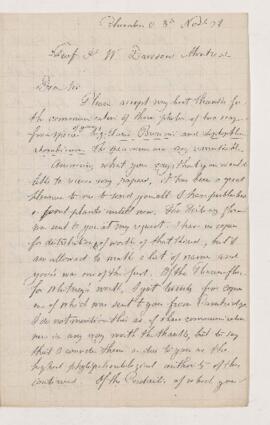 Columbus O. 3d Nov. 78
Prof. J. W. Dawson Montreal
Dear Sir
Please accept my best thanks for
the communication of those photos of two very
fine species of and
The specimens are very remarkable.
Concerning what you say, that you would
like to receive my papers, it has been a great
pleasure to me to send you all I have published
on fossil plants until now. The
was sent to you at my request. I have no copies
for distribution of works of that kind, but I
am allowed to make a list of names and
yours was one of the first. Of the Pliocene flora
for Whitney's work, I got twenty five copies
one of which was sent to you from Cambridge
I do not mention this as if these communications
were in any way worth the thanks, but to say
that I consider them as due to you as the
highest phytopaleontological authority of this
continent. Of the of which you